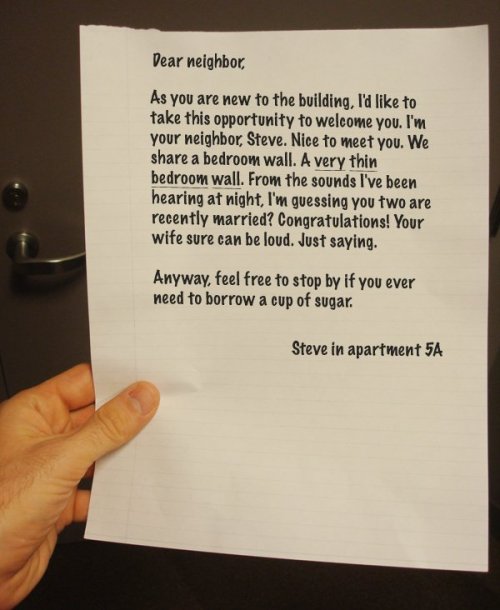 Dear neighbor,
As you are new to the building, I'd like to
take this opportunity to welcome you. I'm
your neighbor, Steve. Nice to meet you. We
share a bedroom wall. A very thin
bedroom wall. From the sounds I've been
hearing at night, I'm guessing you two are
recently married? Congratulations! Your
wife sure can be loud. Just saying.
Anyway, feel free to stop by if you ever
need to borrow a cup of sugar.
Steve in apartment 5A